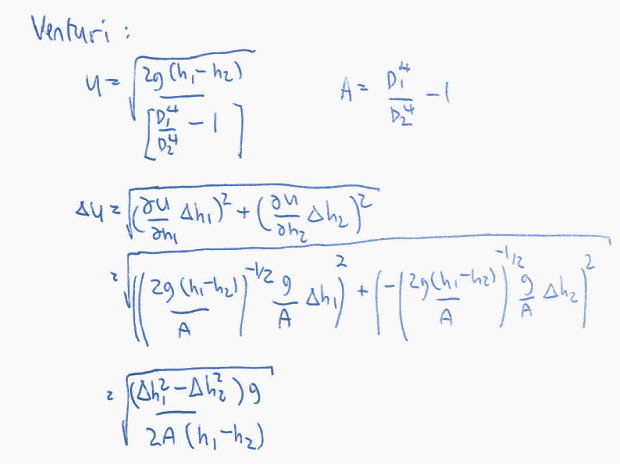 Venturi :
u = √(2g(h₁-h₂) / [D₁⁴/D₂⁴ - 1])    A = D₁⁴/D₂⁴ - 1
Δu = √((∂u/∂h₁ Δh₁)² + (∂u/∂h₂ Δh₂)²)
= √(((2g(h₁-h₂)/A)^(-1/2) g/A Δh₁)² + (-(2g(h₁-h₂)/A)^(-1/2) g/A Δh₂)²)
= √((Δh₁² - Δh₂²)g / 2A(h₁-h₂))